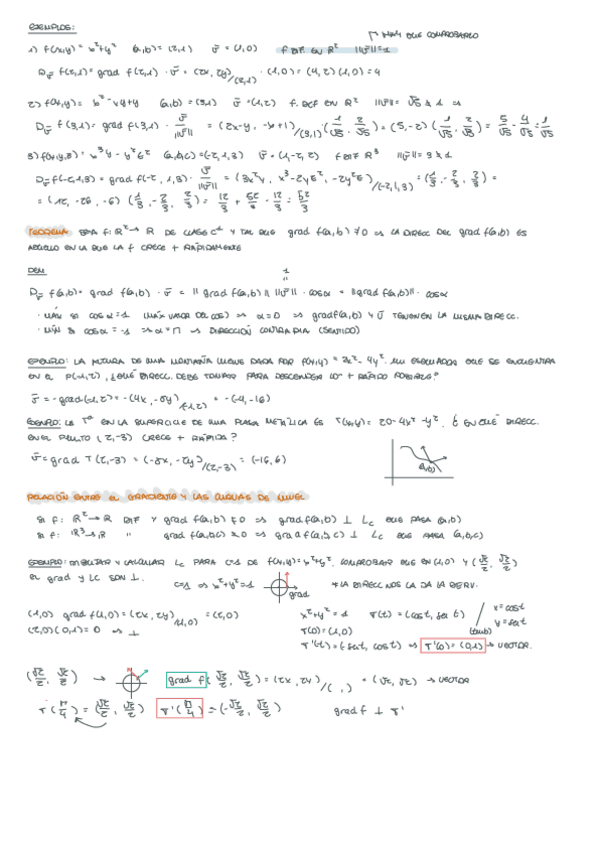 EJEMPLOS:
↱ HAY QUE COMPROBARLO
1) f(x,y) = x²+y² (a,b) = (2,1) v̄ = (1,0) f DIF EN R² ||v̄|| = 1
D_v̄ f(2,1) = grad f(2,1) · v̄ = (2x, 2y)/(2,1) · (1,0) = (4,2)(1,0) = 4
2) f(x,y) = x² - xy + y (a,b) = (3,1) v̄ = (1,2) f. DIF EN R² ||v̄|| = √5 ≠ 1 ⇒
D_v̄ f(3,1) = grad f(3,1) · v̄/||v̄|| = (2x-y, -x+1)/(3,1) · (1/√5, 2/√5) = (5,-2)(1/√5, 2/√5) = 5/√5 - 4/√5 = 1/√5
3) f(x,y,z) = x³y - y²z² (a,b,c) = (-2,1,3) v̄ = (1,-2,2) f DIF R³ ||v̄|| = 3 ≠ 1
D_v̄ f(-2,1,3) = grad f(-2,1,3) · v̄/||v̄|| = (3x²y, x³-2yz², -2y²z)/(-2,1,3) · (1/3, -2/3, 2/3) =
= (12, -26, -6) (1/3, -2/3, 2/3) = 12/3 + 52/3 - 12/3 = 52/3
TEOREMA SEA f: R² → R DE CLASE C¹ Y TAL QUE grad f(a,b) ≠ 0 ⇒ LA DIRECC DEL grad f(a,b) ES
AQUELLO EN LA QUE LA f CRECE + RÁPIDAMENTE
DEM
1
"
D_v̄ f(a,b) = grad f(a,b) · v̄ = || grad f(a,b) || ||v̄|| · cos α = || grad f(a,b) || · cos α
· MÁX SI COS α = 1 (MÁX VALOR DEL COS) ⇒ α = 0 ⇒ grad f(a,b) Y v̄ TIENEN LA MISMA DIRECC.
· MÍN SI COS α = -1 ⇒ α = π ⇒ DIRECCIÓN CONTRARIA (SENTIDO)
EJEMPLO: LA ALTURA DE UNA MONTAÑA VIENE DADA POR f(x,y) = 2x² - 4y². UN ESQUIADOR QUE SE ENCUENTRA
EN EL P(-1,2), ¿QUÉ DIRECC. DEBE TOMAR PARA DESCENDER LO + RÁPIDO POSIBLE?
v̄ = -grad(-1,2) = -(4x, -8y)/(-1,2) = -(-4,-16)
EJEMPLO: LA Tª EN LA SUPERFICIE DE UNA PLACA METÁLICA ES T(x,y) = 20-4x²-y². ¿EN QUÉ DIRECC.
EN EL PUNTO (2,-3) CRECE + RÁPIDA?
v̄ = grad T(2,-3) = (-8x, -2y)/(2,-3) = (-16, 6)
(a,b)
RELACIÓN ENTRE EL GRADIENTE Y LAS CURVAS DE NIVEL
SI f: R² → R DIF Y grad f(a,b) ≠ 0 ⇒ grad f(a,b) ⊥ L_c QUE PASA (a,b)
SI f: R³ → R " grad f(a,b,c) ≠ 0 ⇒ grad f(a,b,c) ⊥ L_c QUE PASA (a,b,c)
EJEMPLO: DIBUJAR Y CALCULAR L_c PARA C=1 DE f(x,y) = x²+y². COMPROBAR QUE EN (1,0) Y (√2/2, √2/2)
EL grad Y LC SON ⊥.
C=1 ⇒ x²+y²=1 grad * LA DIRECC NOS LA DA LA DERIV.
(1,0) grad f(1,0) = (2x, 2y)/(1,0) = (2,0) x²+y² = 1 T(t) = (cos t, sen t) x = cos t
(2,0)(0,1) = 0 ⇒ ⊥ T(0) = (1,0) y = sen t
T'(t) = (-sen t, cos t) ⇒ T'(0) = (0,1) → VECTOR.
(√2/2, √2/2) → grad f(√2/2, √2/2) = (2x, 2y)/( , ) = (√2, √2) → VECTOR
T(π/4) = (√2/2, √2/2) T'(π/4) = (-√2/2, √2/2) grad f ⊥ T'